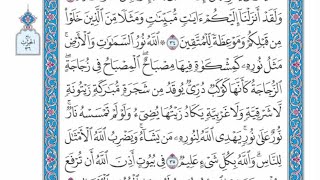 وَلَقَدْ أَنزَلْنَآ إِلَيْكُمْ ءَايَٰتٍ مُّبَيِّنَٰتٍ وَمَثَلًا مِّنَ ٱلَّذِينَ خَلَوْا۟
مِن قَبْلِكُمْ وَمَوْعِظَةً لِّلْمُتَّقِينَ ٣٤ ٱللَّهُ نُورُ ٱلسَّمَٰوَٰتِ وَٱلْأَرْضِ ۚ
مَثَلُ نُورِهِۦ كَمِشْكَوٰةٍ فِيهَا مِصْبَاحٌ ۖ ٱلْمِصْبَاحُ فِى زُجَاجَةٍ ۖ
ٱلزُّجَاجَةُ كَأَنَّهَا كَوْكَبٌ دُرِّىٌّ يُوقَدُ مِن شَجَرَةٍ مُّبَٰرَكَةٍ زَيْتُونَةٍ
لَّا شَرْقِيَّةٍ وَلَا غَرْبِيَّةٍ يَكَادُ زَيْتُهَا يُضِىٓءُ وَلَوْ لَمْ تَمْسَسْهُ نَارٌ ۚ
نُّورٌ عَلَىٰ نُورٍ ۗ يَهْدِى ٱللَّهُ لِنُورِهِۦ مَن يَشَآءُ ۚ وَيَضْرِبُ ٱللَّهُ ٱلْأَمْثَٰلَ
لِلنَّاسِ ۗ وَٱللَّهُ بِكُلِّ شَىْءٍ عَلِيمٌ ٣٥ فِى بُيُوتٍ أَذِنَ ٱللَّهُ أَن تُرْفَعَ